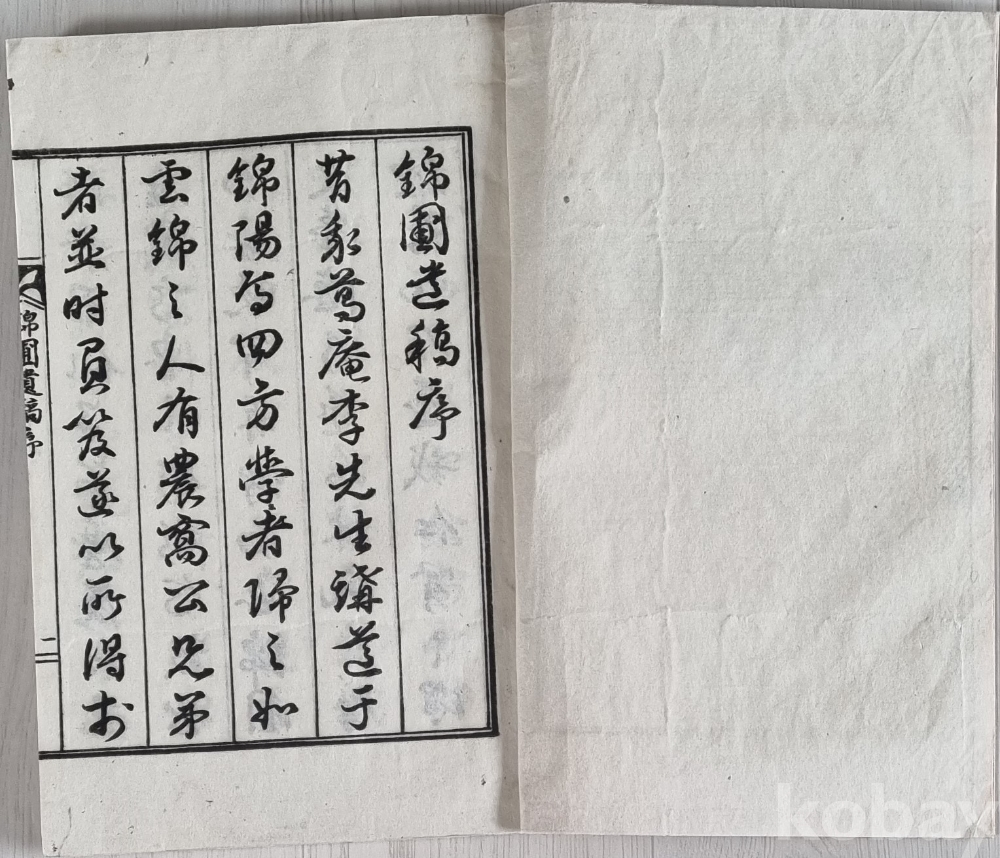 錦圃遺稿序
昔我葛庵李先生講道于
錦陽焉四方學者歸之如
雲錦之人有農窩公兄弟
者並时負笈遂以所得於
錦圃遺稿序
二
kobay